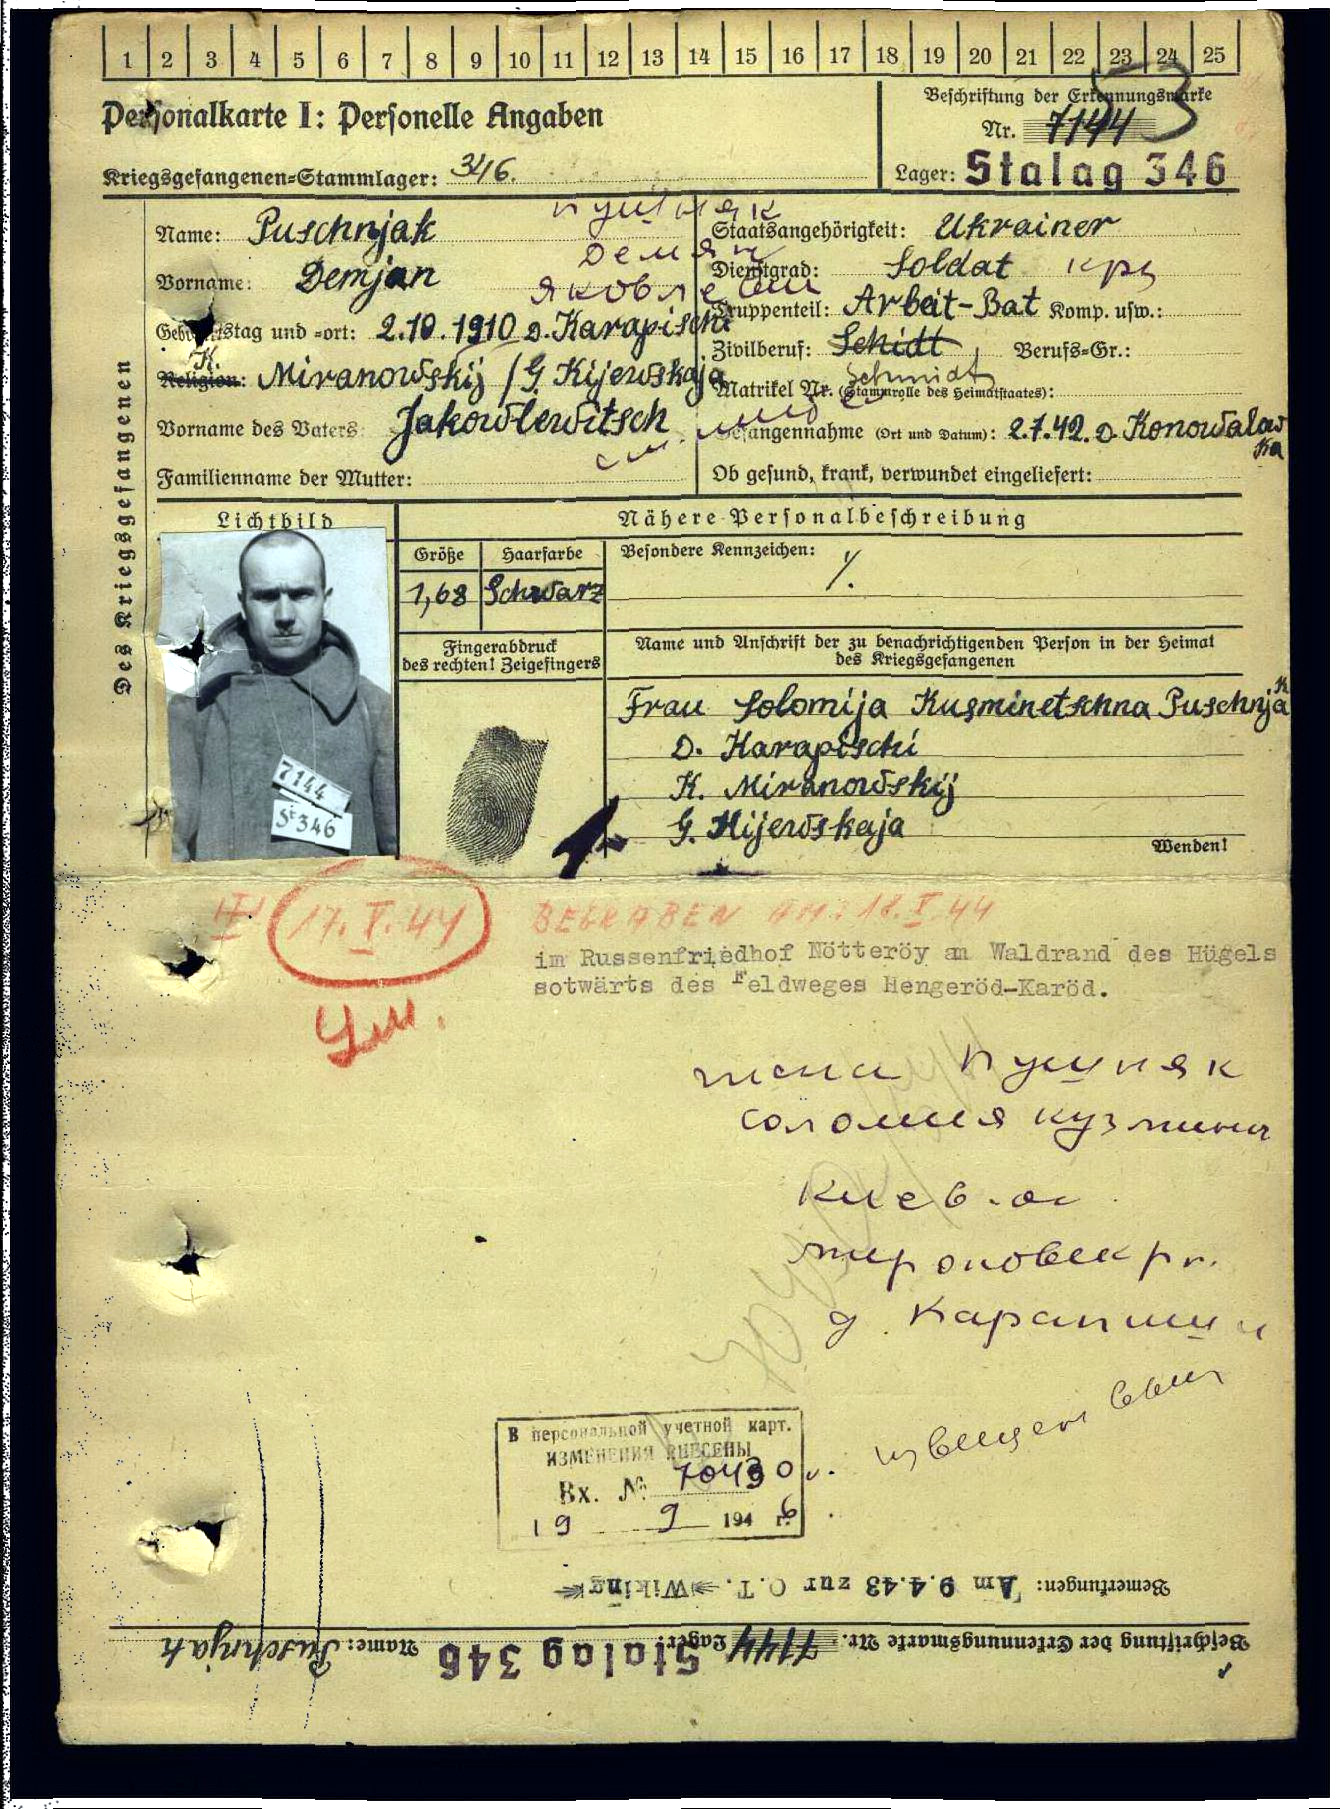 1 2 3 4 5 6 7 8 9 10 11 12 13 14 15 16 17 18 19 20 21 22 23 24 25
Personalkarte I: Personelle Angaben
Kriegsgefangenen-Stammlager: 346.
Beschriftung der Erkennungsmarke
Nr. 7144
Lager: Stalag 346
Des Kriegsgefangenen
Name: Puschnjak
Пушняк
Vorname: Demjan
Демян
Яковлевич
Geburtstag und -ort: 2.10.1910 D. Karapischi
K.
Religion: Miranowskij / G. Kijewskaja
Vorname des Vaters: Jakowlewitsch
Familienname der Mutter:
Staatsangehörigkeit: Ukrainer
Dienstgrad: Soldat кр
Truppenteil: Arbeit-Bat Komp. usw.:
Zivilberuf: Schidt Berufs-Gr.:
Schmidt
Matrikel Nr. (Stammrolle des Heimatstaates):
Gefangennahme (Ort und Datum): 2.7.42. D. Konowalowka
Ob gesund, krank, verwundet eingeliefert:
Lichtbild
Nähere Personalbeschreibung
Größe Haarfarbe
1,68 Schwarz
Besondere Kennzeichen: ./.
Fingerabdruck
des rechten! Zeigefingers
Name und Anschrift der zu benachrichtigenden Person in der Heimat
des Kriegsgefangenen
Frau Solomija Kusminetschna Puschnjak
D. Karapischi
K. Miranowskij
G. Kijewskaja
Wenden!
7144
St 346
17.V.44
BEGRABEN AM: 18.V.44
im Russenfriedhof Nötteröy am Waldrand des Hügels
sotwärts des Feldweges Hengeröd-Karöd.
Ум.
жена Пушняк
Соломия Кузминич
Киев. об
мироновск р н.
д Карапиши
извещен
В персональной учетной карт.
ИЗМЕНЕНИЯ ВНЕСЕНЫ
Вх. № 70430
19 9 1946 г.
Bemerkungen: Am 9.4.43 zur O.T. "Wiking"
Beschriftung der Erkennungsmarke Nr. 7144 Lager: Stalag 346 Name: Puschnjak